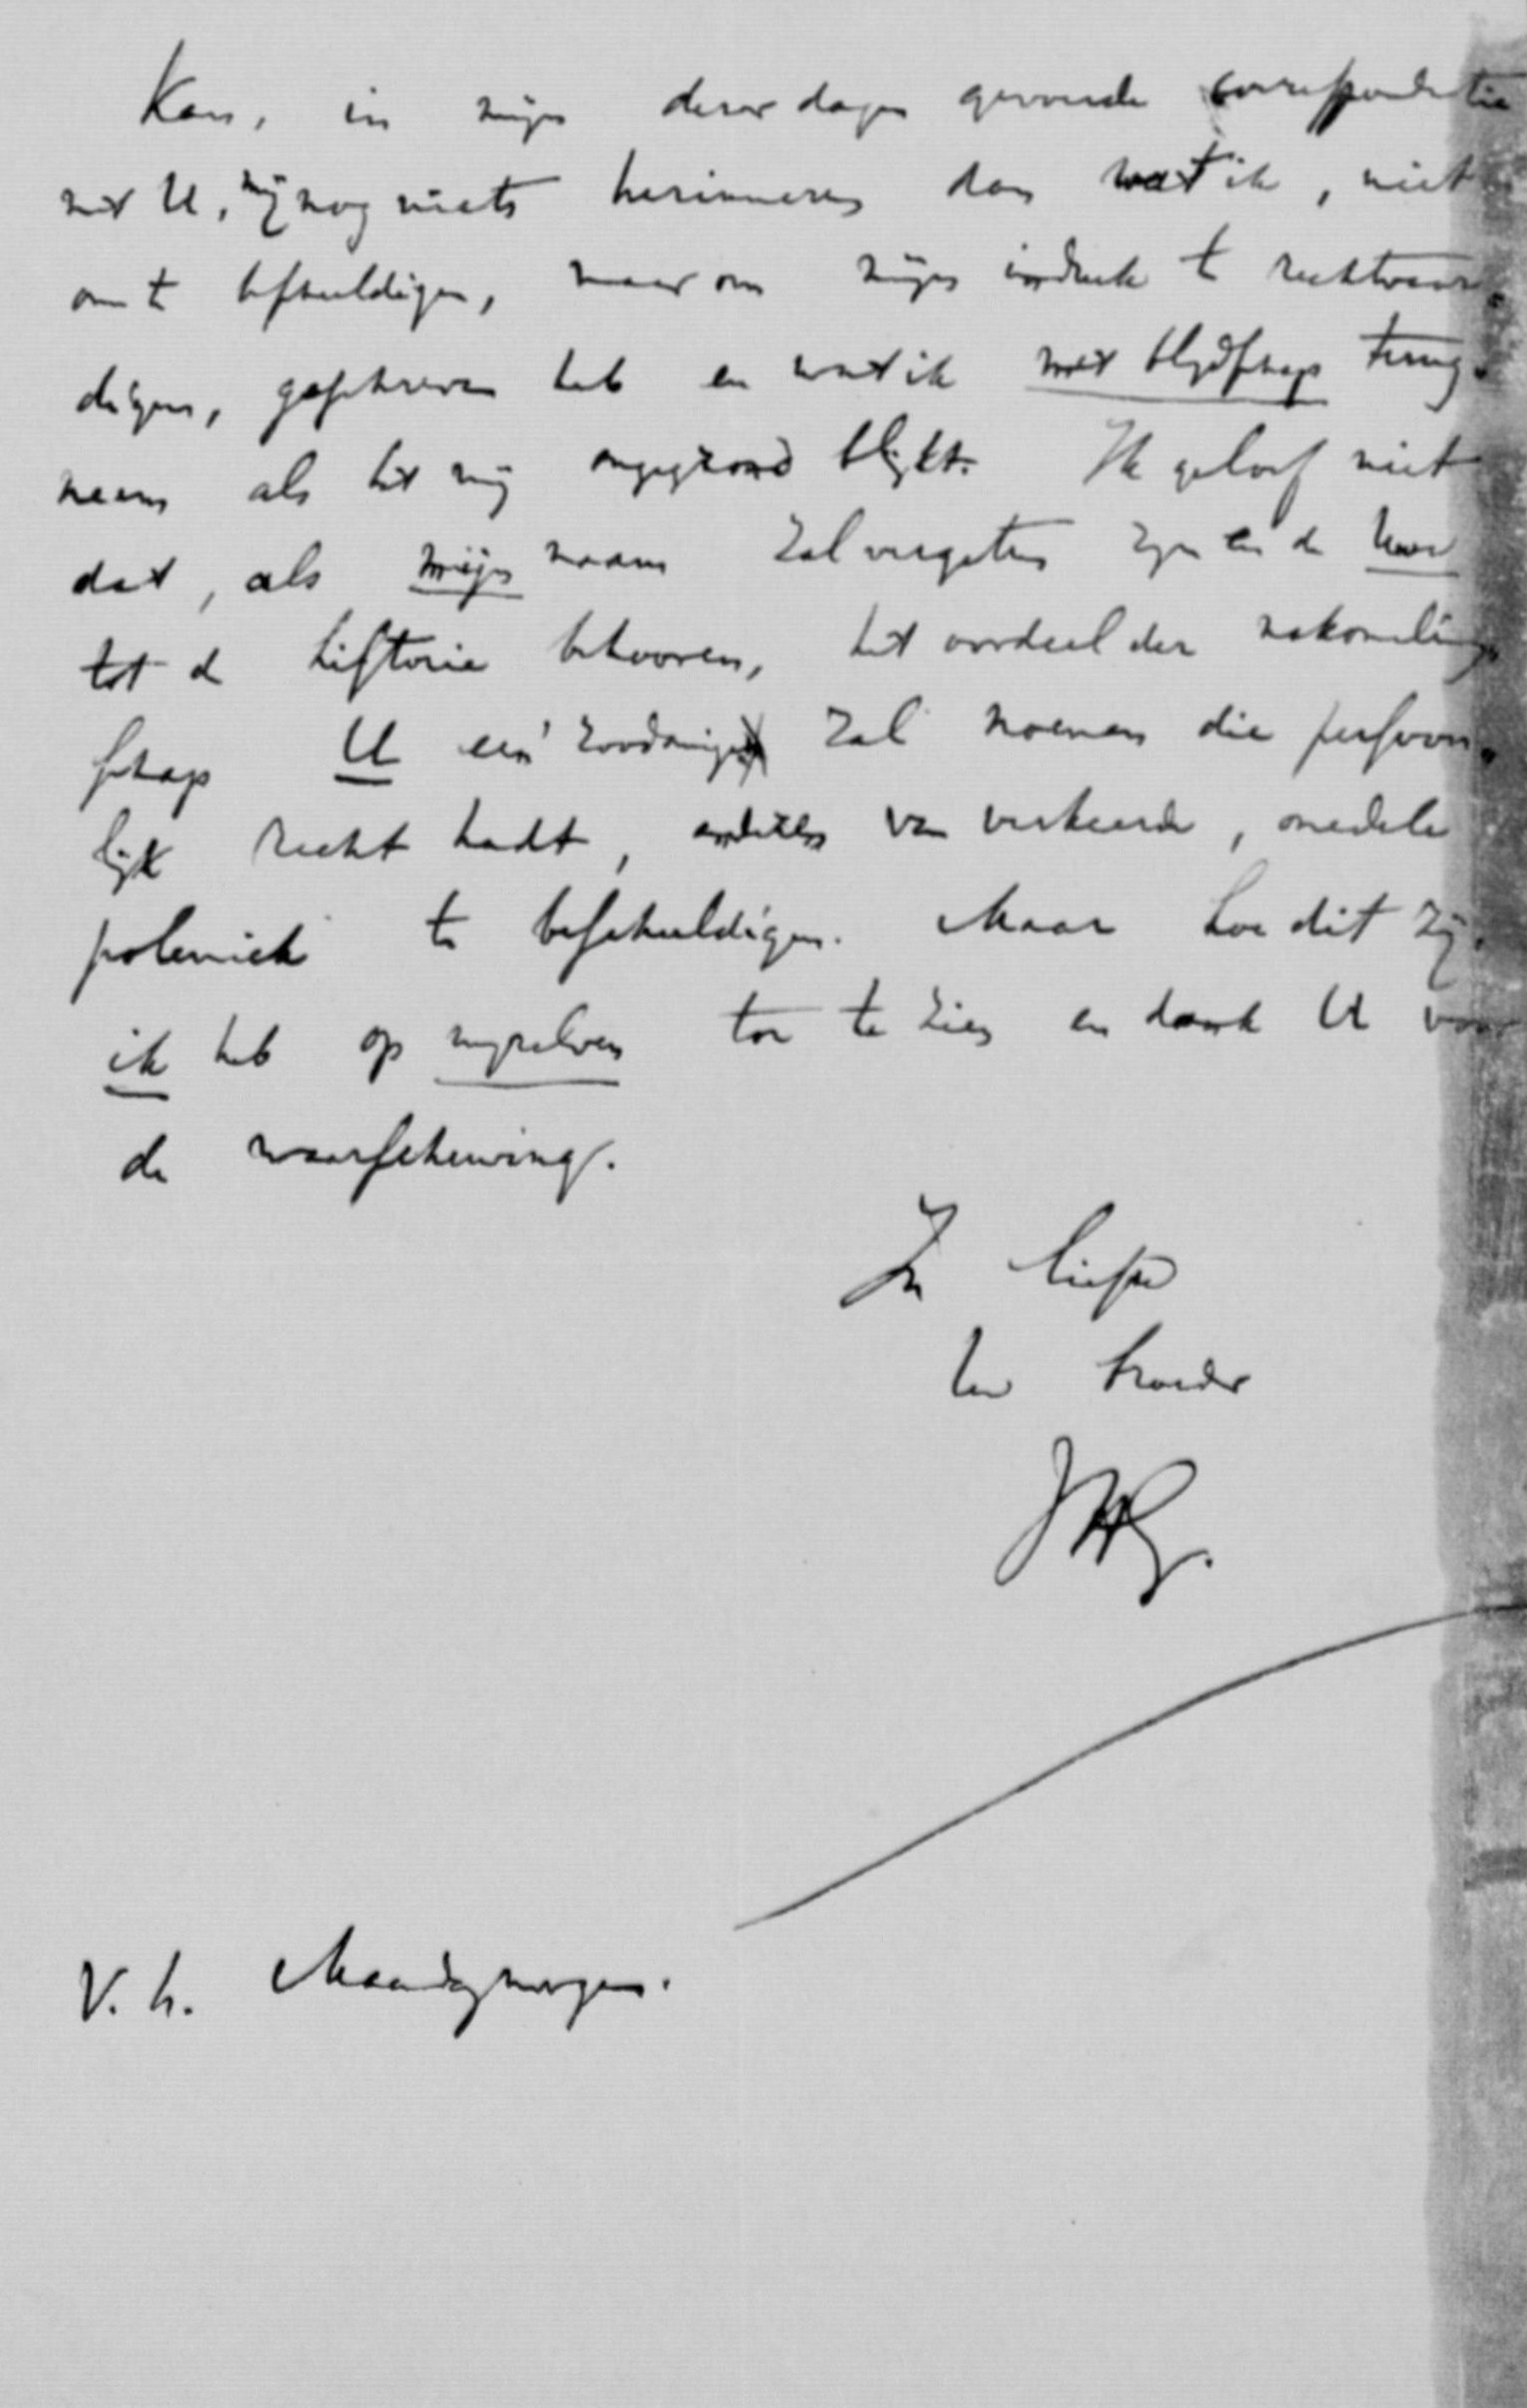 Kan, in mijn dezer dagen gevoerde correspondentie
met U, mij nog niets herinneren dan wat ik, niet
om te beschuldigen, maar om mijn indruk te rechtvaar-
digen, geschreven heb en wat ik met blydschap terug-
neem als het mij ongegrond blijkt. Ik geloof niet
dat, als mijn naam zal vergeten zyn en de Uwe
tot de historie behooren, het oordeel der nakomeling-
schap U een zoodanige zal noemen die persoon-
lijk recht hadt, anderen van verkeerde, onedele
polemiek te beschuldigen. Maar hoe dit zij,
ik heb op mijzelven toe te zien en dank U voor
de waarschuwing.
In liefde
Uw broeder
V. h. Maandagmorgen.